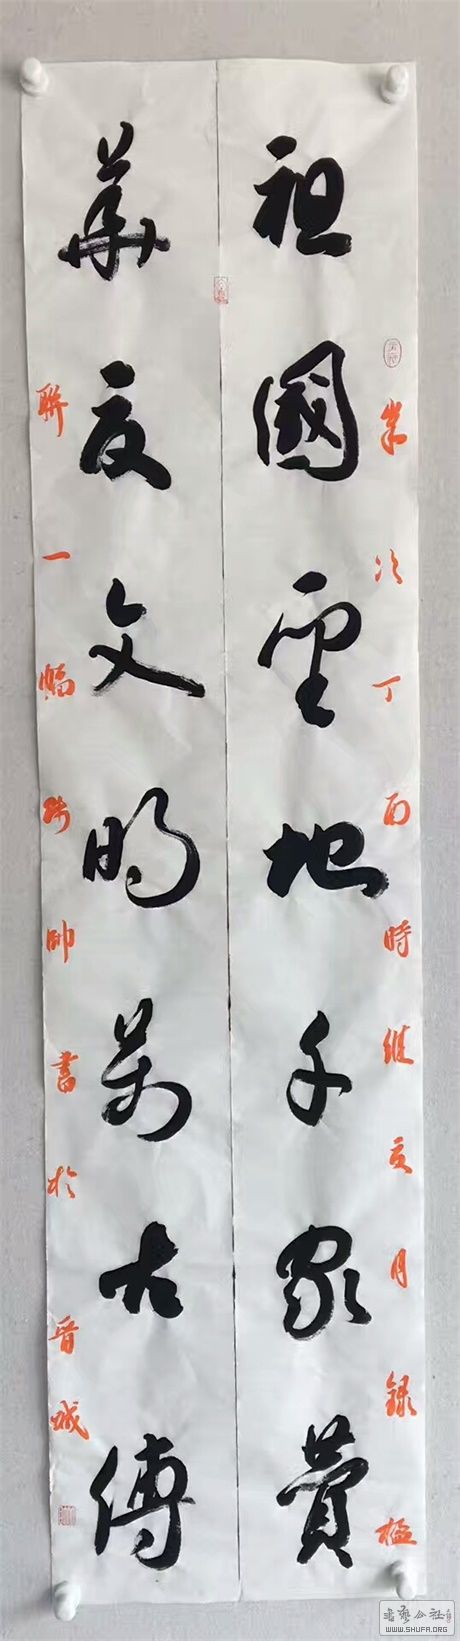 祖國聖地千家贊
華夏文明萬古傳
歲次丁酉時維亥月録楹
聯一幅帥書於晋城
WWW.SHUFA.ORG